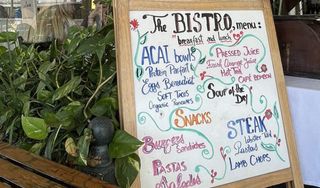 The BISTRO, menu:
breakfast and lunch
ACAI bowls
Protein Parfait
Eggs Benedict
Soft Tacos
Organic Pancakes
PRESSED JUICE
Fresh Orange Juice
Hot Tea
CAFE BERGEN
Soup of the Day
SNACKS
BURGERS
Sandwiches
PASTAS
Salads
STEAK
Lobster Tail
Pastas
LAMB CHOPS